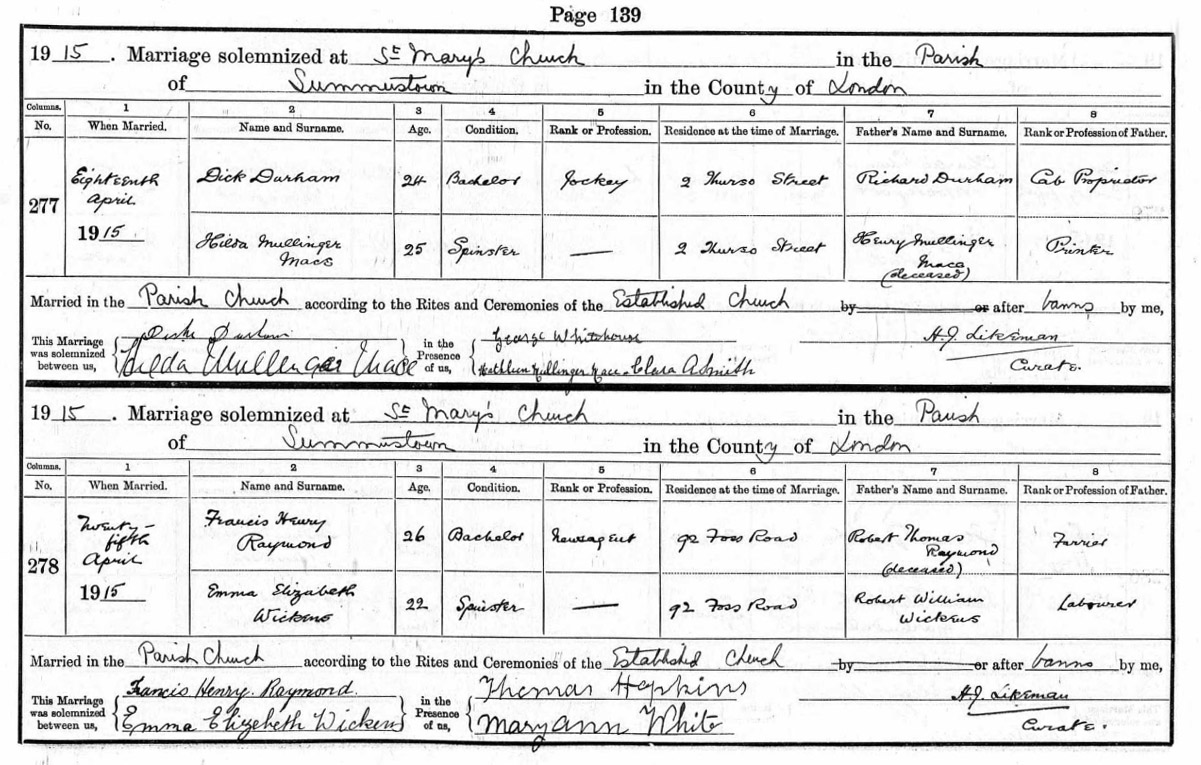 Page 139
1915. Marriage solemnized at St Mary's Church in the Parish
of Summerstown in the County of London
Columns. 1 2 3 4 5 6 7 8
No. When Married. Name and Surname. Age. Condition. Rank or Profession. Residence at the time of Marriage. Father's Name and Surname. Rank or Profession of Father.
277 Eighteenth April 1915
Dick Durham 24 Bachelor Jockey 2 Thurso Street Richard Durham Cab Proprietor
Hilda Mullinger Mace 25 Spinster — 2 Thurso Street Henry Mullinger Mace (deceased) Printer
Married in the Parish Church according to the Rites and Ceremonies of the Established Church by or after banns by me,
This Marriage was solemnized between us,
Dick Durham
Hilda Mullinger Mace
in the Presence of us,
George Whitehouse
Kathleen Mullinger Mace - Clara A Smith
H.J. Likeman
Curate.
1915. Marriage solemnized at St Mary's Church in the Parish
of Summerstown in the County of London
Columns. 1 2 3 4 5 6 7 8
No. When Married. Name and Surname. Age. Condition. Rank or Profession. Residence at the time of Marriage. Father's Name and Surname. Rank or Profession of Father.
278 Twenty-fifth April 1915
Francis Henry Raymond 26 Bachelor Newsagent 92 Foss Road Robert Thomas Raymond (deceased) Farrier
Emma Elizabeth Wickens 22 Spinster — 92 Foss Road Robert William Wickens Labourer
Married in the Parish Church according to the Rites and Ceremonies of the Established Church by or after banns by me,
This Marriage was solemnized between us,
Francis Henry Raymond.
Emma Elizebeth Wickens
in the Presence of us,
Thomas Hopkins
Mary Ann White
H.J. Likeman
Curate.